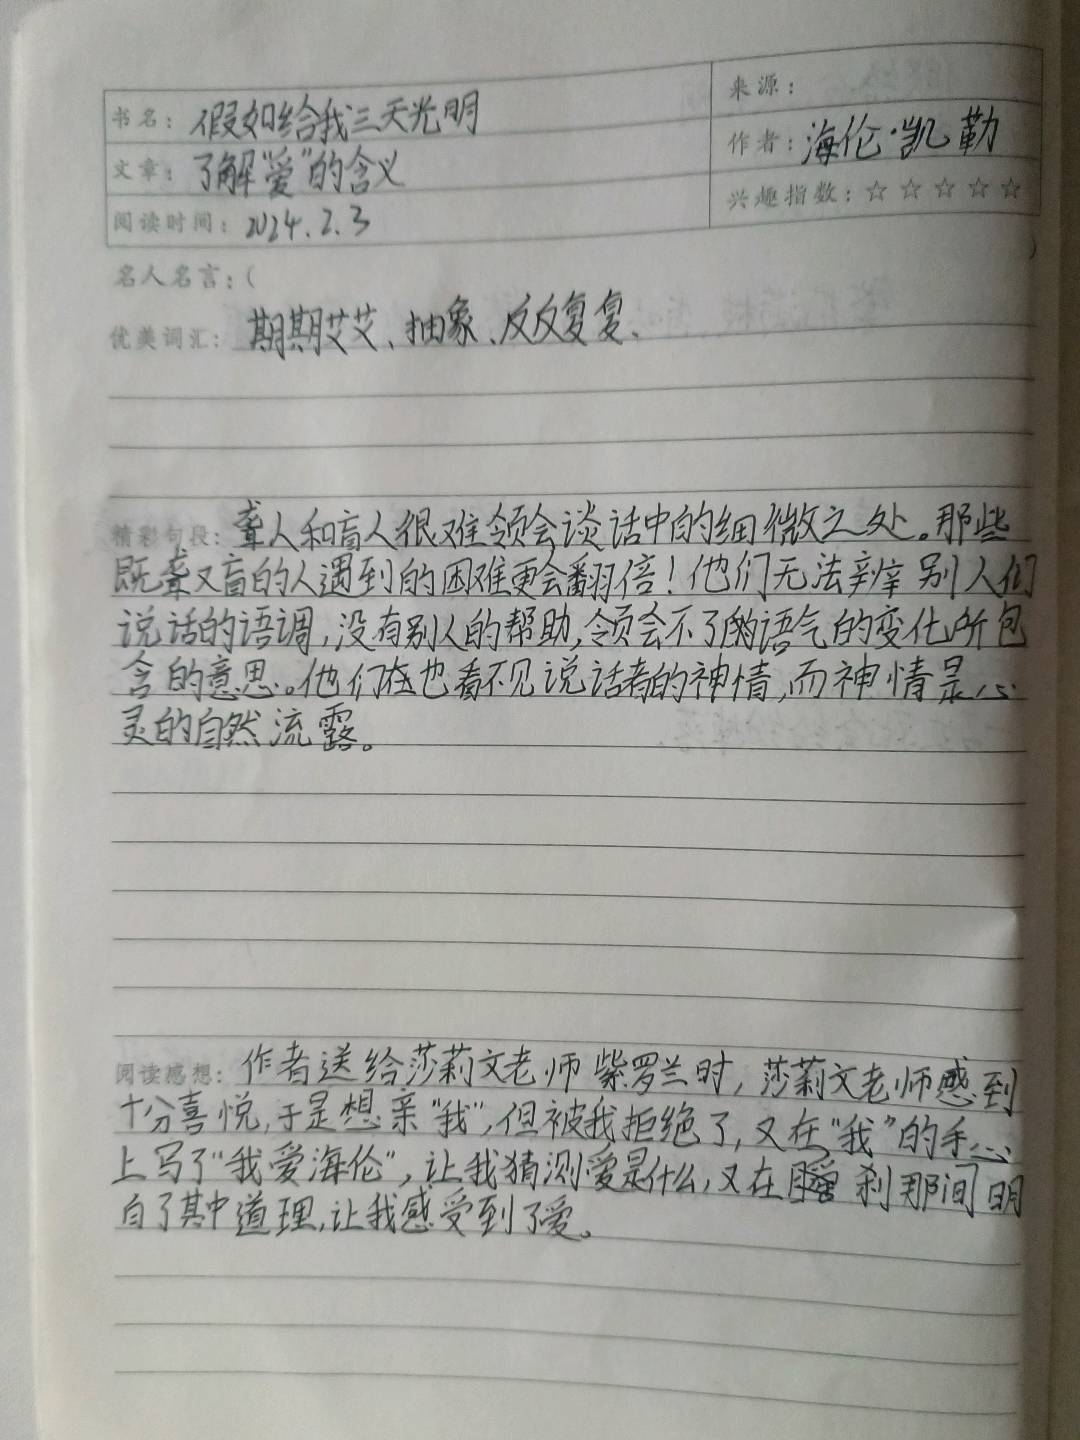 书名：假如给我三天光明
来源：
文章：了解“爱”的含义
作者：海伦·凯勒
阅读时间：2024.2.3
兴趣指数：☆☆☆☆☆
名人名言：(
)
优美词汇：期期艾艾、抽象、反反复复、
精彩句段：聋人和盲人很难领会谈话中的细微之处。那些
既聋又盲的人遇到的困难更会翻倍！他们无法辨别人们
说话的语调，没有别人的帮助，领会不了语气的变化所包
含的意思。他们在也看不见说话者的神情，而神情是心
灵的自然流露。
阅读感想：作者送给莎莉文老师紫罗兰时，莎莉文老师感到
十分喜悦，于是想亲“我”，但被我拒绝了，又在“我”的手心
上写了“我爱海伦”，让我猜测爱是什么，又在 刹那间明
白了其中道理，让我感受到了爱。